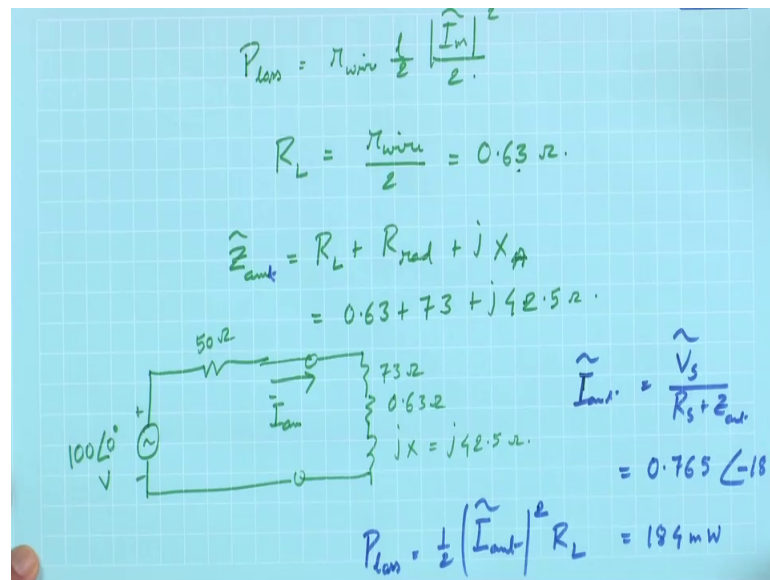 P_loss = r_wire 1/2 |Ĩ_m|²/2.
R_L = r_wire/2 = 0.63 Ω.
Z̃_ant = R_L + R_rad + j X_A
= 0.63 + 73 + j42.5 Ω.
50Ω
73Ω
0.63Ω
jX = j42.5 Ω.
+
100∠0°
V
-
Ĩ_an
Ĩ_ant. = Ṽ_s / R_s + Z_ant.
= 0.765 ∠-18
P_loss = 1/2 |Ĩ_ant|² R_L = 184 mW